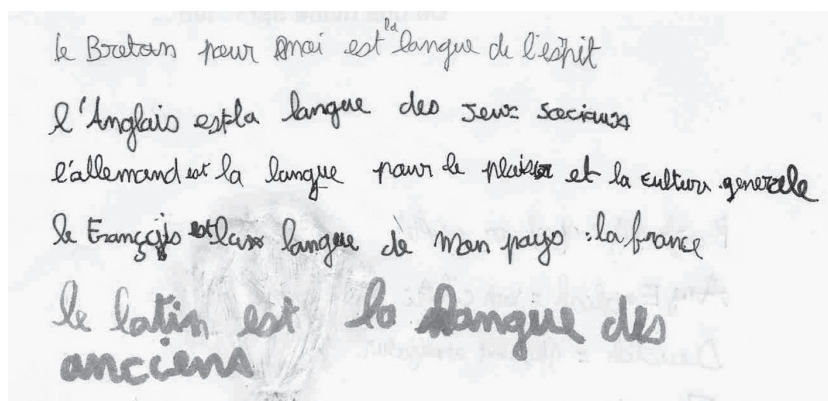 le Breton pour moi est la langue de l'esprit
l'Anglais est la langue des jeux sociaux
l'allemand est la langue pour le plaisir et la culture generale
le Français est la langue de mon pays : la france
le latin est la langue des
anciens